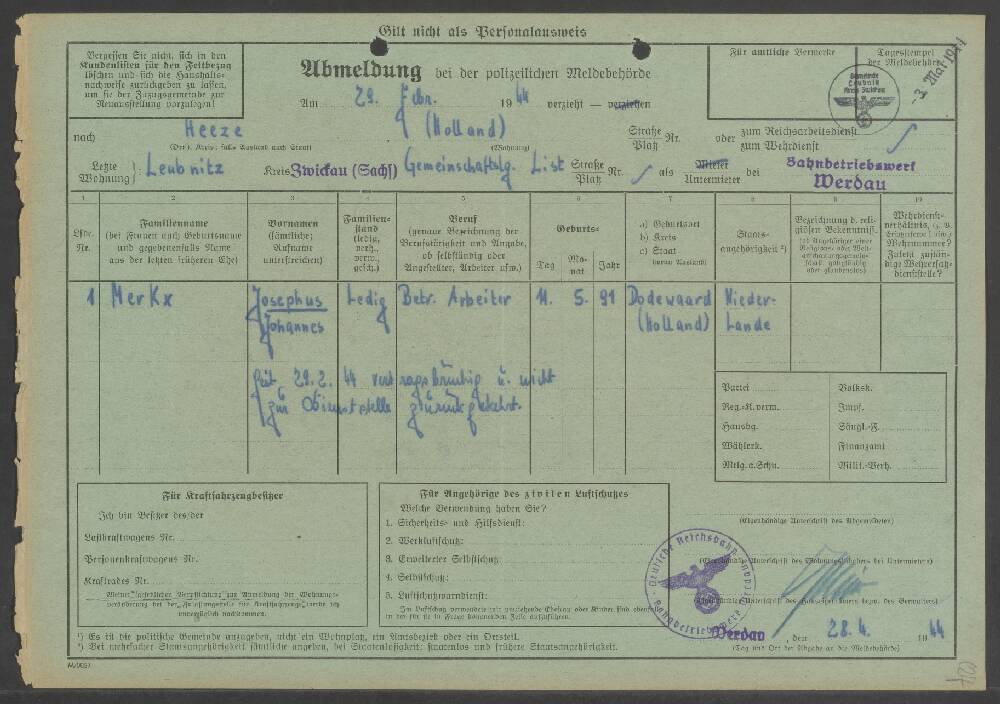 Gilt nicht als Personalausweis
Vergessen Sie nicht, sich in den
Kundenlisten für den Fettbezug
löschen und sich die Haushalts-
nachweise zurückgeben zu lassen,
um sie der Zuzugsgemeinde zur
Neuausstellung vorzulegen!
Abmeldung bei der polizeilichen Meldebehörde
Für amtliche Vermerke
Tagesstempel
der Meldebehörde
-3. Mai 1944
Am 29. Febr. 1944 verzieht — verziehen
nach Heeze (Holland) Straße Platz Nr. oder zum Reichsarbeitsdienst zum Wehrdienst
(Ort, Kreis; falls Ausland auch Staat) (Wohnung)
Letzte Wohnung: Leubnitz Kreis Zwickau (Sachs) Gemeinschaftslg. List Straße Platz Nr. als Mieter Untermieter bei Bahnbetriebswerk Werdau
1 2 3 4 5 6 7 8 9 10
Lfde. Nr.
Familienname
(bei Frauen auch Geburtsname
und gegebenenfalls Name
aus der letzten früheren Ehe)
Vornamen
(sämtliche;
Rufname
unterstreichen)
Familien-
stand
(ledig,
verh.,
verw.,
gesch.)
Beruf
(genaue Bezeichnung der
Berufstätigkeit und Angabe,
ob selbständig oder
Angestellter, Arbeiter usw.)
Geburts-
Tag Mo-nat Jahr
a) Geburtsort
b) Kreis
c) Staat
(wenn Ausland)
Staats-
angehörigkeit ²)
Bezeichnung d. reli-
giösen Bekenntniss.
Wehrdienst-
verhältnis
Wehrnummer?
Zuletzt zustän-
dige Wehrersatz-
dienststelle?
1 Merkx Josephus Ledig Betr. Arbeiter 11. 5. 91 Dodewaard Nieder-
Johannes (Holland) Lande
Seit 29.2.44 vertragsbrüchig u. nicht
zur Dienststelle zurückgekehrt.
Partei Volksk.
Reg.-K. verm. Impf.
Hausbg. Säugl.-F.
Wählerk. Finanzamt
Mitlg. a. Schu. Milit.-Beh.
Für Kraftfahrzeugbesitzer
Ich bin Besitzer des/der
Lastkraftwagens Nr.
Personenkraftwagens Nr.
Kraftrades Nr.
Meiner gesetzlichen Verpflichtung zur Anmeldung der Wohnungs-
veränderung bei der Zulassungsstelle für Kraftfahrzeuge werde ich
unverzüglich nachkommen.
Für Angehörige des zivilen Luftschutzes
Welche Verwendung haben Sie?
1. Sicherheits- und Hilfsdienst:
2. Werkluftschutz:
3. Erweiterter Selbstschutz:
4. Selbstschutz:
5. Luftschutzwarndienst:
Im Luftschutz verwendete mit umziehende Ehefrau oder Kinder sind ebenfalls
in der für sie in Frage kommenden Zeile aufzuführen.
(Eigenhändige Unterschrift des Abgemeldeten)
(Eigenhändige Unterschrift des Wohnungsgebers bei Untermietern)
(Eigenhändige Unterschrift des Hauseigentümers bezw. des Verwalters)
Deutsche Reichsbahn
Werdau, den 28.4. 1944
(Tag und Ort der Abgabe an die Meldebehörde)
¹) Es ist die politische Gemeinde anzugeben, nicht ein Wohnplatz, ein Amtsbezirk oder ein Ortsteil.
²) Bei mehrfacher Staatsangehörigkeit sämtliche angeben, bei Staatenlosigkeit: staatenlos und frühere Staatsangehörigkeit.